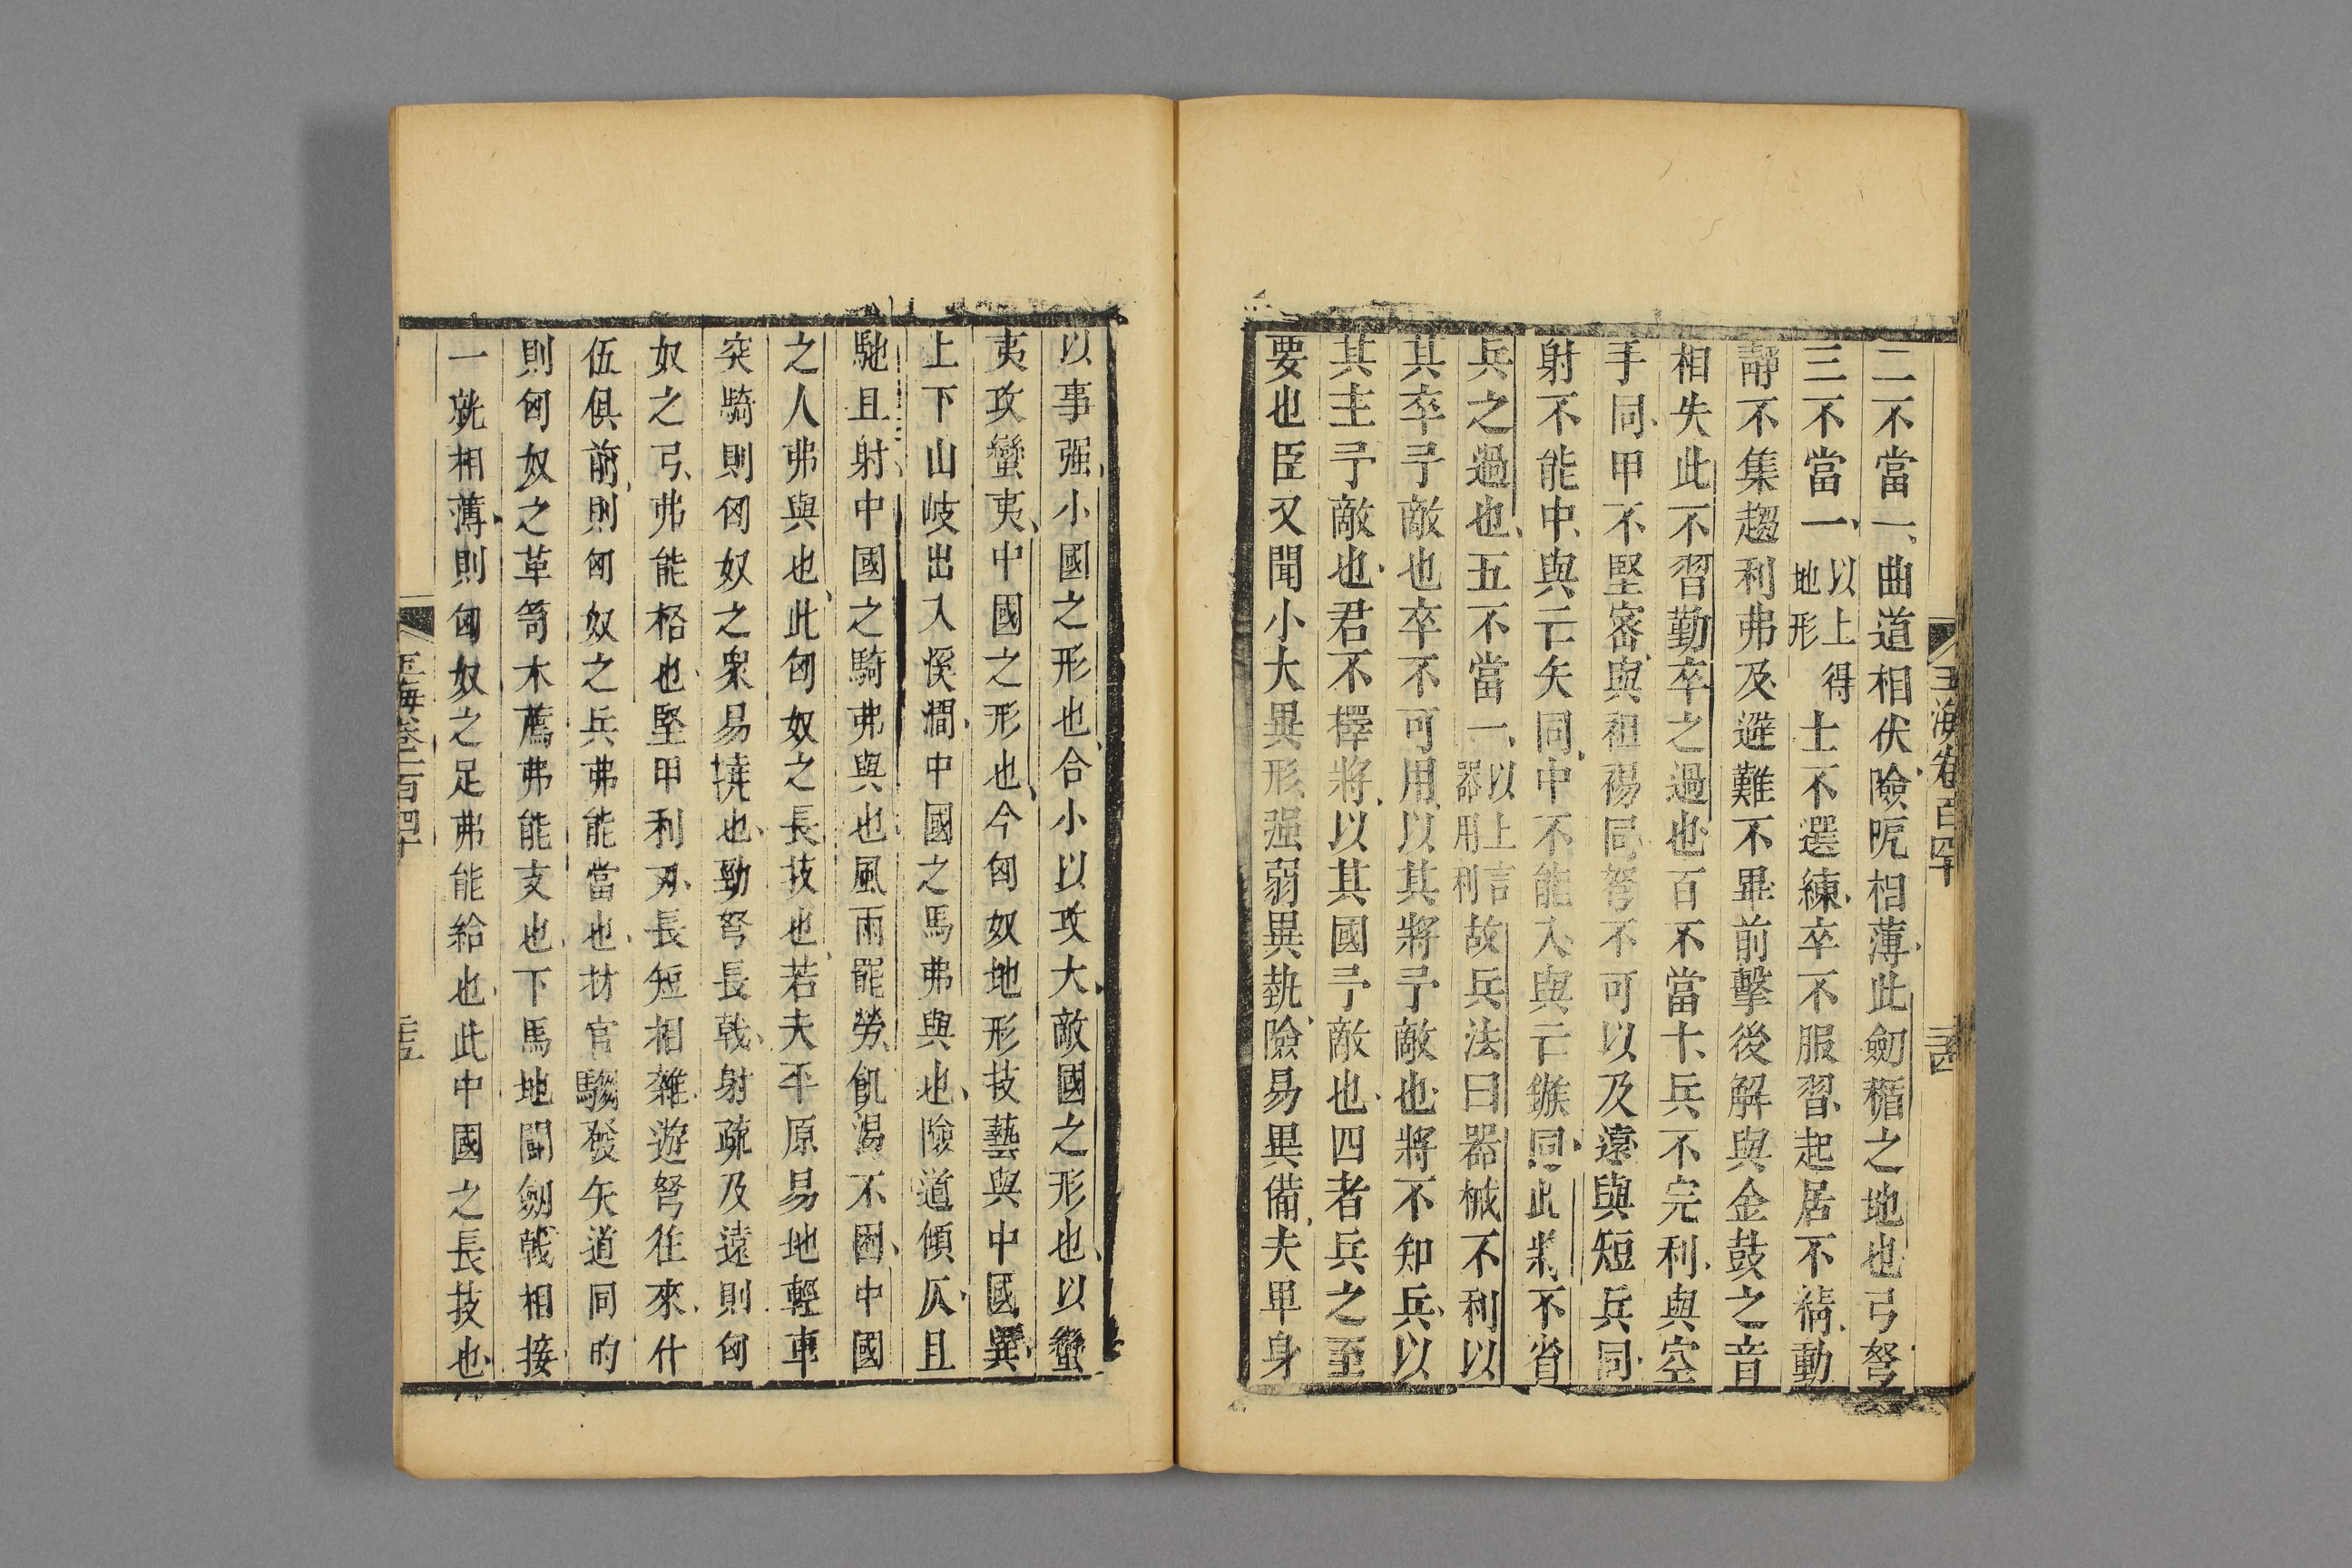 玉海卷百四十
二不當一曲道相伏險阨相薄此劒楯之地也弓弩
三不當一以上得地形士不選練卒不服習起居不精動
靜不集趨利弗及避難不畢前擊後解與金鼓之音
相失此不習勤卒之過也百不當十兵不完利與空
手同甲不堅宻與袒裼同弩不可以及遠與短兵同
射不能中與亡矢同中不能入與亡鏃同此將不省
兵之過也五不當一以上言器用利故兵法曰器械不利以
其卒予敵也卒不可用以其將予敵也將不知兵以
其主予敵也君不擇將以其國予敵也四者兵之至
要也臣又聞小大異形强弱異埶險易異備夫卑身
以事强小國之形也合小以攻大敵國之形也以蠻
夷攻蠻夷中國之形也今匈奴地形技藝與中國異
上下山岐出入溪澗中國之馬弗與也險道傾仄且
馳且射中國之騎弗與也風雨罷勞飢渴不困中國
之人弗與也此匈奴之長技也若夫平原易地輕車
突騎則匈奴之衆易撓也勁弩長戟射疏及遠則匈
奴之弓弗能格也堅甲利刃長短相雜遊弩往來什
伍俱前則匈奴之兵弗能當也材官騶發矢道同的
則匈奴之革笥木薦弗能支也下馬地鬬劒戟相接
一就相薄則匈奴之足弗能給也此中國之長技也
玉海卷一百四十